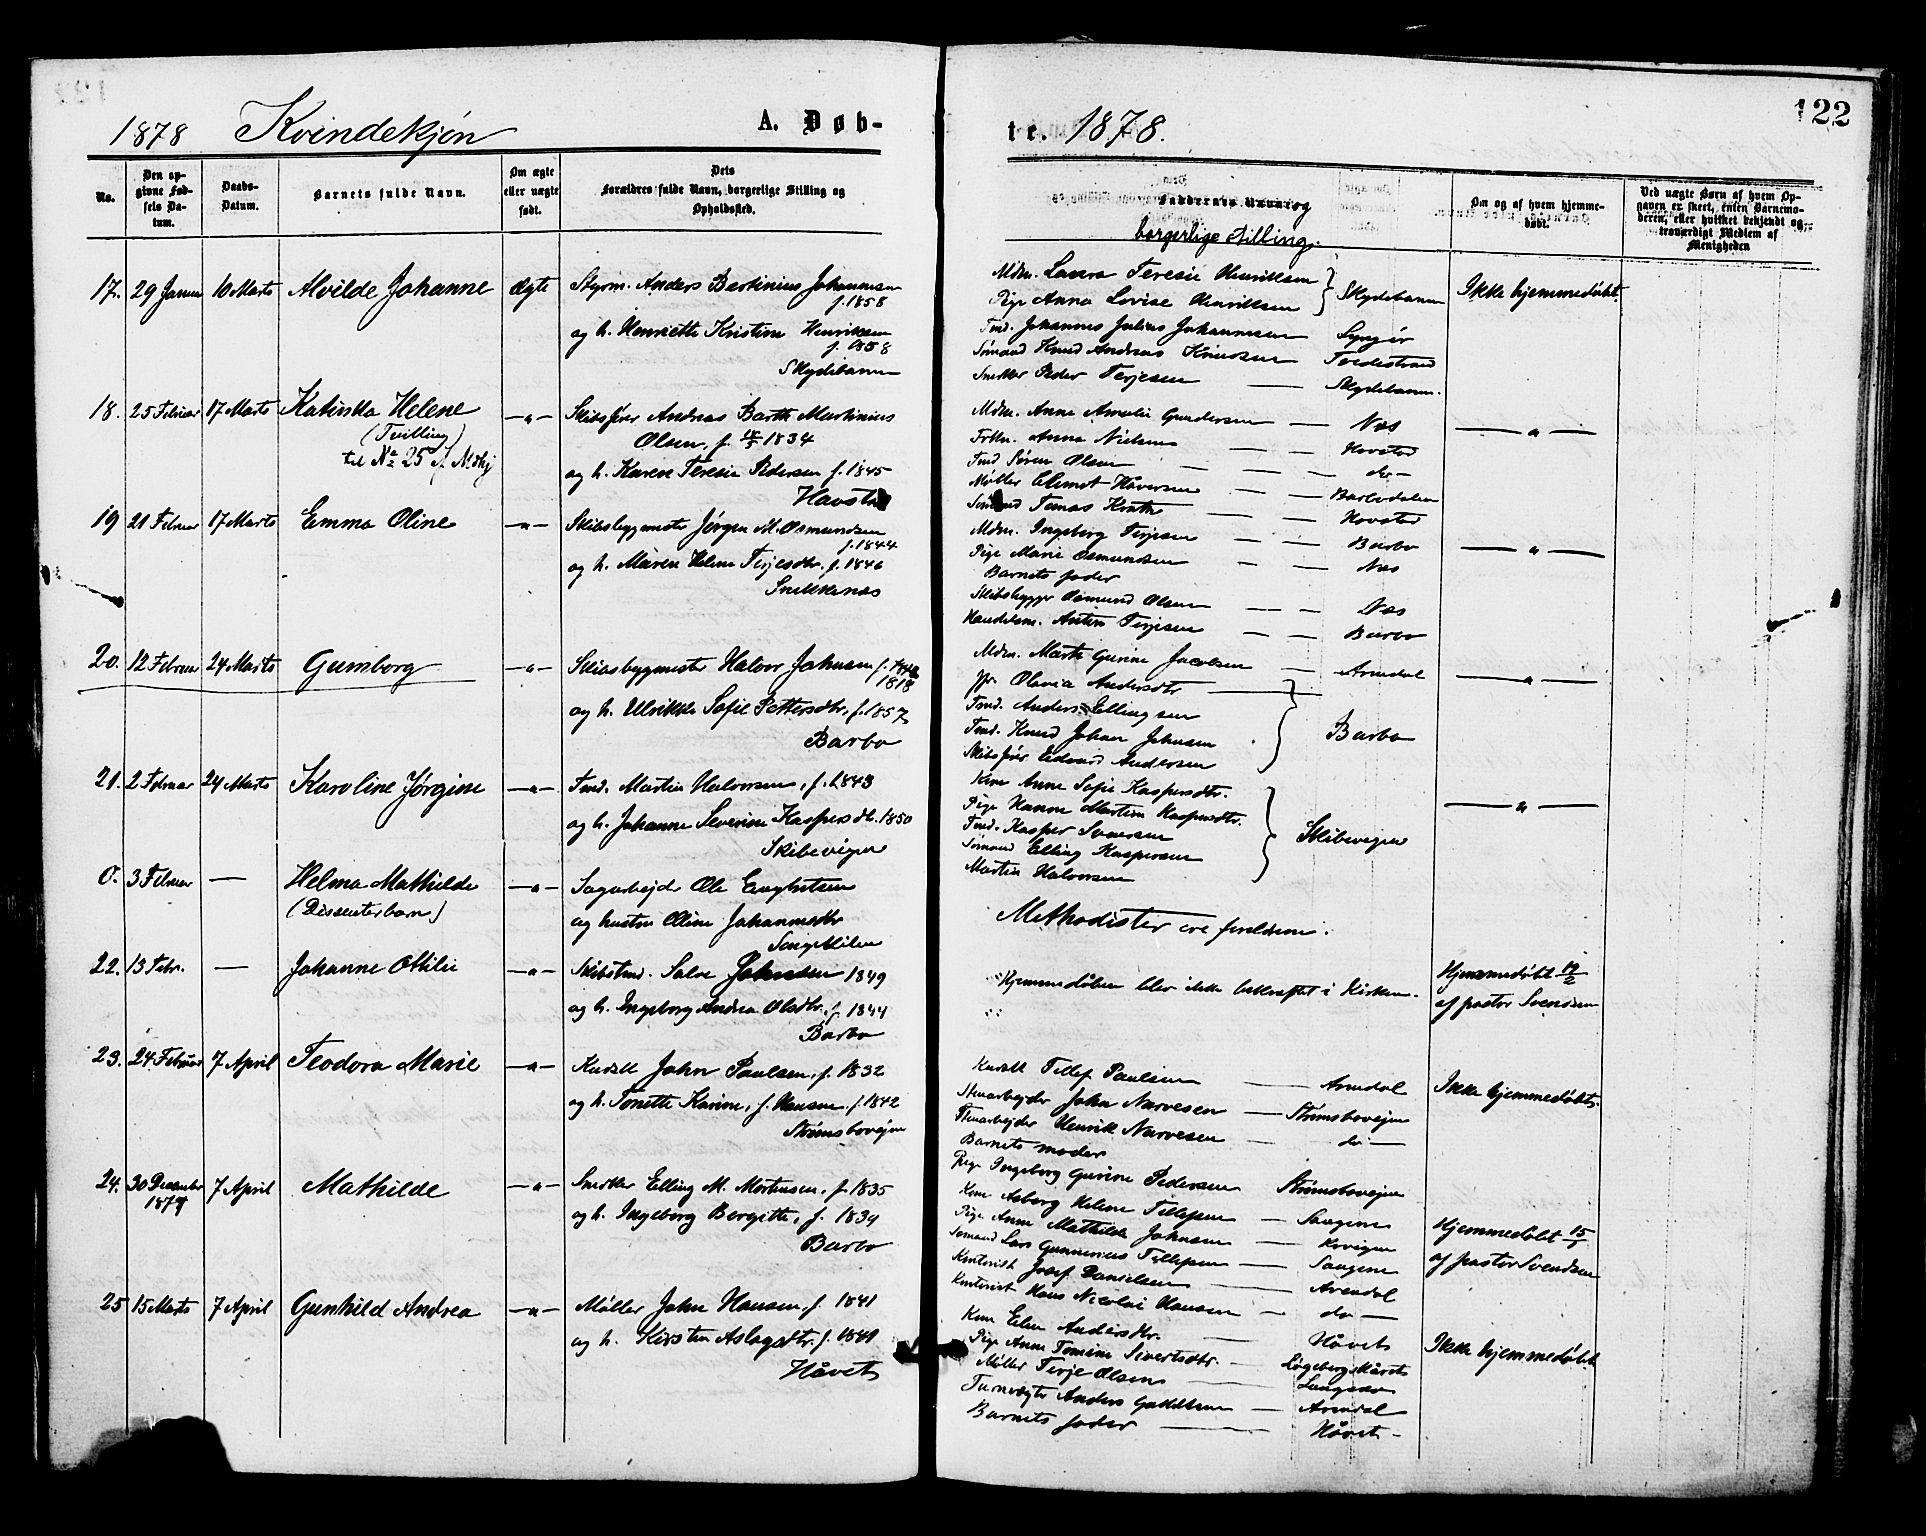 122
1878 Kvindekjøn A. Døb-
te. 1878.
No.
Den op-
givne Fød-
sels Da-
tum.
Daabs-
Datum.
Barnets fulde Navn.
Om ægte
eller uægte
født.
Dets
Forældres fulde Navn, borgerlige Stilling og
Opholdssted.
Faddernes Navne og
borgerlige Stilling.
Om og af hvem hjemme-
døbt.
Ved uægte Børn af hvem Op-
gaven er skeet, enten Barnemo-
deren, eller hvilket bekjendt og
troværdigt Medlem af
Menigheden
17. 29 Januar 10 Marts Alvilde Johanne ægte Styrm. Anders Bertinius Johannesen
f. 1858
og h. Henriette Kristine Henriksen
f. 1858
Skydebanen
Mdm. Laura Teresie Henriksen
Pige Anna Lovise Henriksen
Skydebanen
Tmd. Johannes Julius Johannesen Lyngør
Sømand Knud Andreas Knudsen Tvedestrand
Snekker Peder Terjesen Skydebanen.
Ikke hjemmedøbt
18. 25 Februar 17 Marts Katinka Helene —"— Skibsfører Andreas Barth Martinius
(Tvilling)
til No 25 f. Mdkj
Olsen, f. 1834
og h. Karen Teresie Pedersen f. 1845
Havsta
Mdm. Anne Amalie Gundersen — Næs
Frkn. Anna Nielsen — — Hovstad
Tmd Søren Olsen — — do —
Møller Clemet Håversen — — Barbodalen
Sømand Tomas Knath — — Hovstad
—"—
19 21 Februar 17 Marts Emma Oline —"— Skibsbygmester Jørgen M. Osmundsen
f. 1844
og h. Maren Helene Terjesdtr. f. 1846
Snekkenæs
Mdm. Ingeborg Terjesen — — Barbo
Pige Marie Osmundsen — — Næs
Barnets fader
Skibsbygger Osmund Olsen — — Næs
Handelsm. Anton Terjesen — — Barbo
—"—
20. 12 Februar 24 Marts Gumborg —"— Skibsbygmester Halvor Johnsen f.
1818
og h. Ullrikke Sofie Pettersdtr. f. 1857
Barbo
Mdm. Marth Gurine Jacobsen — Arendal
Olavia Andersdtr
Tmd. Anders Ellingsen
Tmd. Knud Johan Johnsen
Skibsfører Edvard Andersen
Barbo
—"—
21. 2 Februar 24 Marts Karoline Jørgine —"— Tmd. Martin Halvorsen, f. 1843
og h. Johanne Severine Kaspersdt. 1850
Skibevigen
Kone Anne Sofie Kaspersdtr.
Pige Hanne Martine Kaspersdtr.
Tmd. Kasper Svensen
Sømand Elling Kaspersen
Martin Halvorsen
Skibevigen
—"—
0. 3 Februar — Helma Mathilde —"— Sagarbejder Ole Engbretsen
(Dissenterbarn)
og hustru Oline Johannesdtr
Songekilen
Methodister ere foreldrene.
22. 13 Febr. — Johanne Ottilie —"— Skibstmd. Salve Johnsen 1849
og h. Ingeborg Andrea Olsdtr, f. 1844
Barbo
Hjemmedåben blev ikke bekræftet i Kirken.
Hjemmedøbt 19/2
af pastor Svendsen
23. 24 Februar 7 April Teodora Marie —"— Kudsk John Paulsen, f. 1832
og h. Tonette Karine, f. Hansen, f. 1842
Strømsbovejen
Kudsk Tellef Paulsen — Arendal
Stenarbejder John Narvesen — Strømsbovejen
Stenarbejder Henrik Narvesen — do —
Barnets moder
Pige Ingeborg Gurine Pedersen Strømsbovejen
Ikke hjemmedøbt.
24. 30 December 7 April Mathilde —"— Snedker Elling M. Mortensen, f. 1835
1877
og h. Ingeborg Bergitte, f. 1839
Barbo
Kone Asborg Helene Tellefsen — Saugene
Pige Anne Mathilde Johnsen — Kovigen
Sømand Lars Gunnerius Tellefsen — Saugene
Kontorist Josef Danielsen — Arendal
Kontorist Hans Nicolai Hansen — do —
Hjemmedøbt 15/1
af pastor Svendsen
25 15 Marts 7 April Gunhild Andrea —"— Møller John Hansen, f. 1841
og h. Kirsten Aslagsdtr, f. 1841
Håvet
Kone Elen Andersdtr. — Håvet
Pige Anne Tomine Sivertsdtr. — Løgeberg Håvet
Møller Terje Olsen — Langsæv
Turnvægter Anders Gudeltsen — Arendal
Barnets fader — Håvet —
Ikke hjemmedøbt